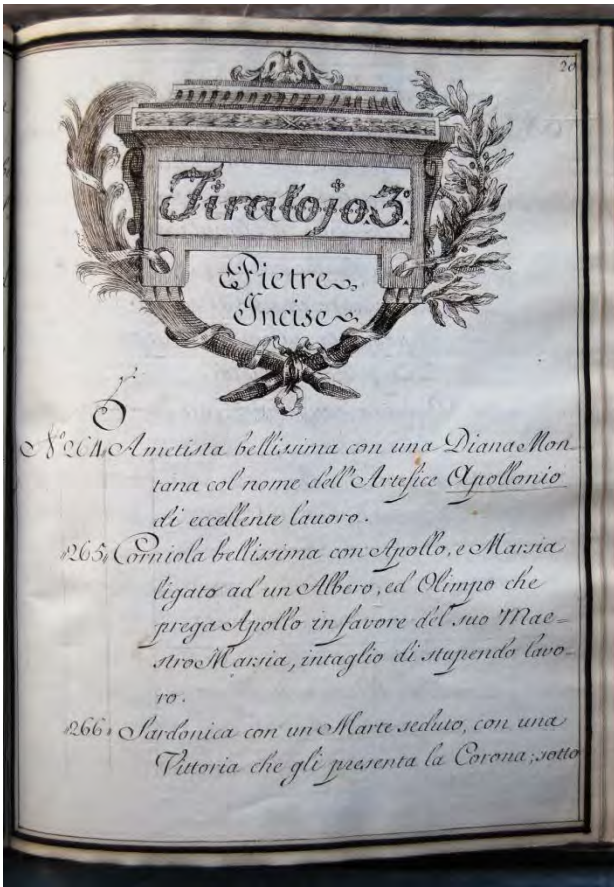 20
Tiratojo 3.º
Pietre
Incise
Nº 264 Ametista bellissima con una Diana Mon-
tana col nome dell'Artefice Apollonio
di eccellente lauoro.
265 Corniola bellissima con Apollo, e Marsia
ligato ad un Albero, ed Olimpo che
prega Apollo in favore del suo Mae=
stro Marsia, intaglio di stupendo lavo-
ro.
266 Sardonica con un Marte seduto, con una
Vittoria che gli presenta la Corona; sotto